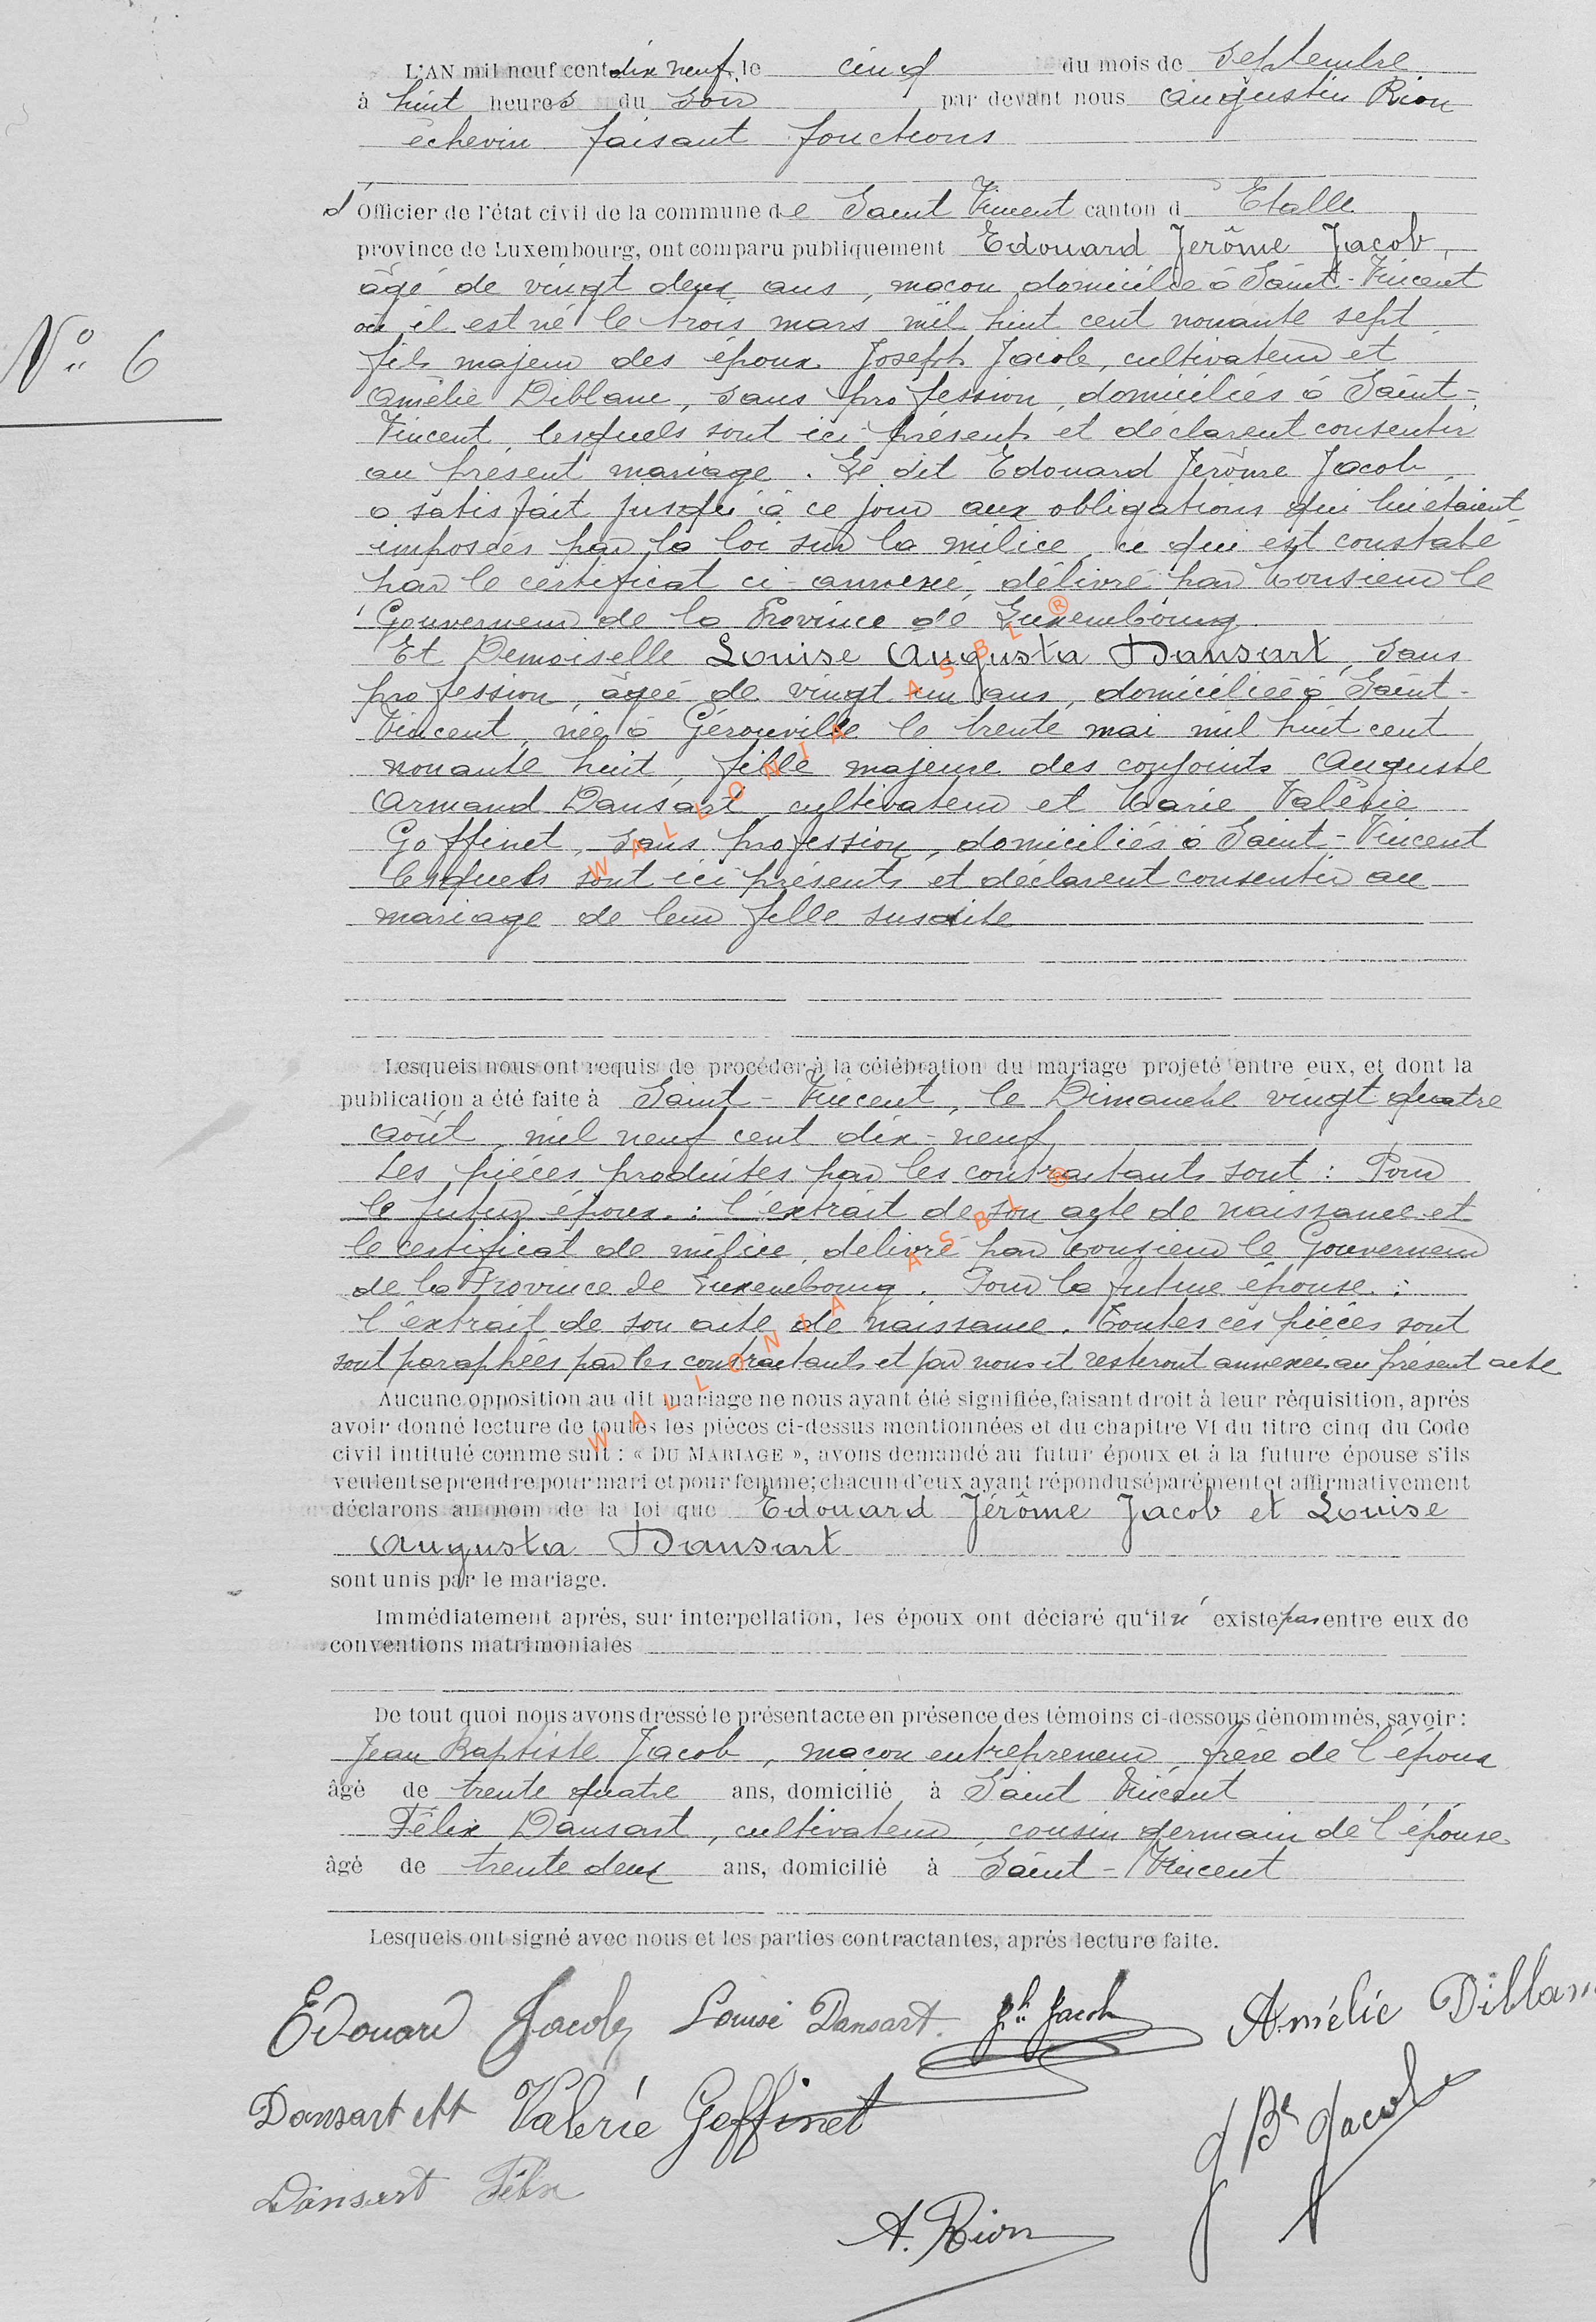 L'AN mil neuf cent dix neuf, le cinq du mois de septembre
à huit heures du soir par devant nous Augustin Rion
échevin faisant fonctions
d'Officier de l'état civil de la commune de Saint Vincent canton d Etalle
province de Luxembourg, ont comparu publiquement Edouard Jerôme Jacob,
âgé de vingt deux ans, maçon domicilié à Saint-Vincent
où il est né le trois mars mil huit cent nonante sept,
fils majeur des époux Joseph Jacob, cultivateur et
Amélie Diblanc, sans profession, domiciliés à Saint-
Vincent, lesquels sont ici présents et déclarent consentir
au présent mariage. Le dit Edouard Jérôme Jacob
a satisfait jusqu'à ce jour aux obligations qui lui étaient
imposées par la loi sur la milice, ce qui est constaté
par le certificat ci-annexé, délivré par Monsieur le
Gouverneur de la Province de Luxembourg.
Et Demoiselle Louise Augusta Dansart, sans
profession, âgée de vingt un ans, domiciliée à Saint-
Vincent, née à Gérouville le trente mai mil huit cent
nonante huit, fille majeure des conjoints Auguste
Armand Dansart, cultivateur et Marie Valérie
Goffinet, sans profession, domiciliés à Saint-Vincent
lesquels sont ici présents et déclarent consentir au
mariage de leur fille susdite
N° 6
Lesquels nous ont requis de procéder à la célébration du mariage projeté entre eux, et dont la
publication a été faite à Saint-Vincent, le Dimanche vingt quatre
Août, mil neuf cent dix-neuf
Les pièces produites par les contractants sont : Pour
le futur époux : l'extrait de son acte de naissance et
le certificat de milice, délivré par Monsieur le Gouverneur
de la Province de Luxembourg. Pour la future épouse :
l'extrait de son acte de naissance. Toutes ces pièces sont
sont paraphées par les contractants et par nous et resteront annexées au présent acte
Aucune opposition au dit mariage ne nous ayant été signifiée, faisant droit à leur réquisition, après
avoir donné lecture de toutes les pièces ci-dessus mentionnées et du chapitre VI du titre cinq du Code
civil intitulé comme suit : « DU MARIAGE », avons demandé au futur époux et à la future épouse s'ils
veulent se prendre pour mari et pour femme; chacun d'eux ayant répondu séparément et affirmativement
déclarons au nom de la loi que Edouard Jérôme Jacob et Louise
Augusta Dansart
sont unis par le mariage.
Immédiatement après, sur interpellation, les époux ont déclaré qu'il n'existe pas entre eux de
conventions matrimoniales
De tout quoi nous avons dressé le présent acte en présence des témoins ci-dessous dénommés, savoir :
Jean Baptiste Jacob, maçon entrepreneur, frère de l'époux
âgé de trente quatre ans, domicilié à Saint Vincent
Félix Dansart, cultivateur, cousin germain de l'épouse
âgé de trente deux ans, domicilié à Saint-Vincent
Lesquels ont signé avec nous et les parties contractantes, après lecture faite.
Edouard Jacob Louise Dansart. Jh Jacob Amélie Diblan
Dansart Valérie Goffinet J Bte Jacob
Dansart Félix
A. Rion
WALLONIA ASBL ®
WALLONIA ASBL ®